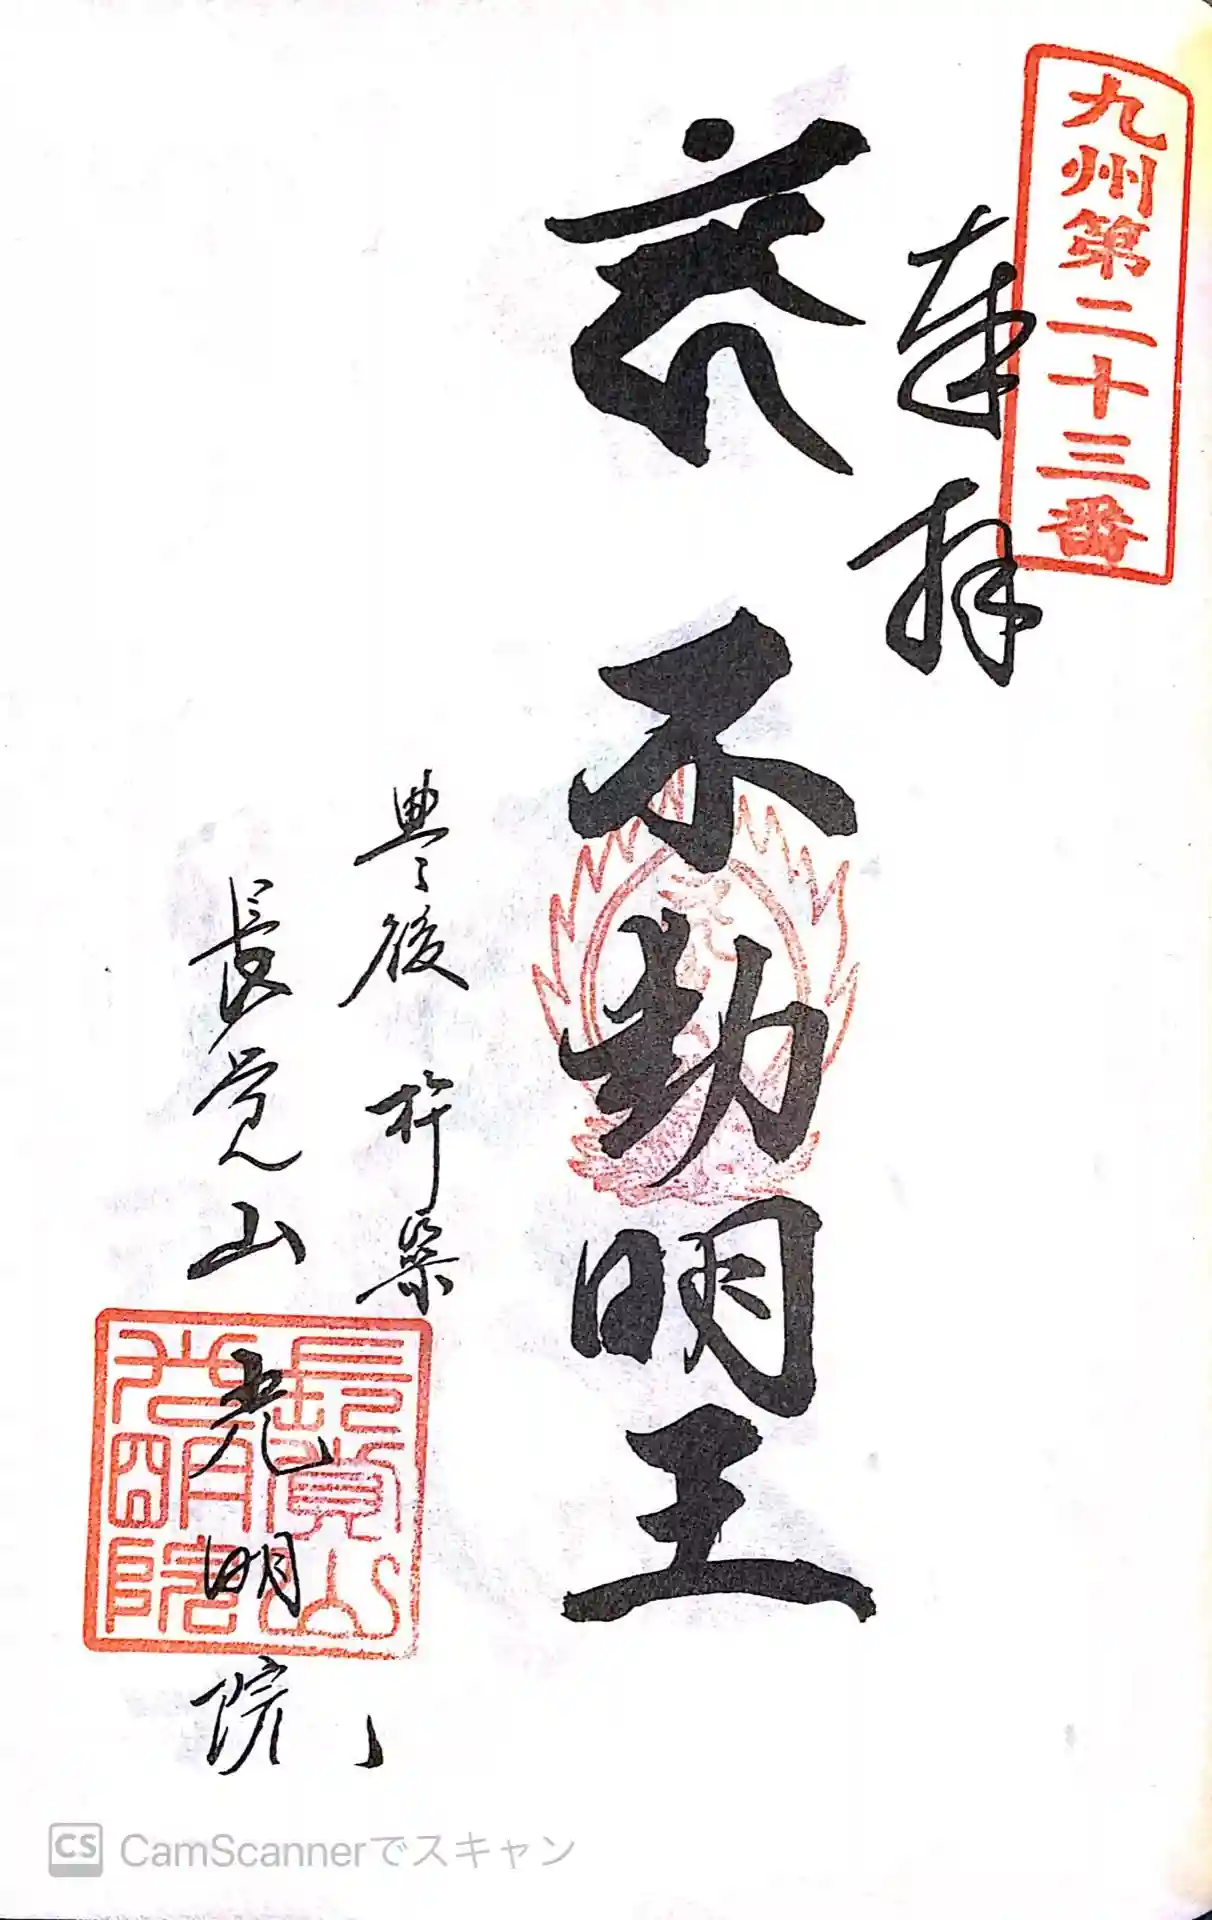 九州第二十三番
奉拝
不動明王
豊後杵築
長覚山光明院
長覚山
光明院
CS CamScannerでスキャン